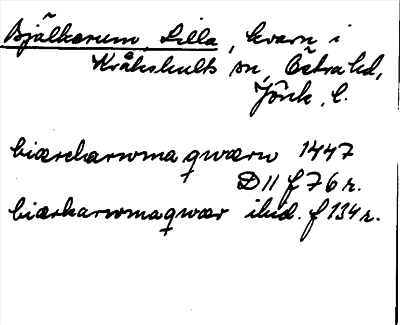 Bjälkerum, Lilla, kvarn i
Kråkshults sn, Östra hd,
Jönk. l.
biærcharwmaqwærn 1447
D 11 f 76 r.
biærkarwmaqwær ibid. f 134 r.